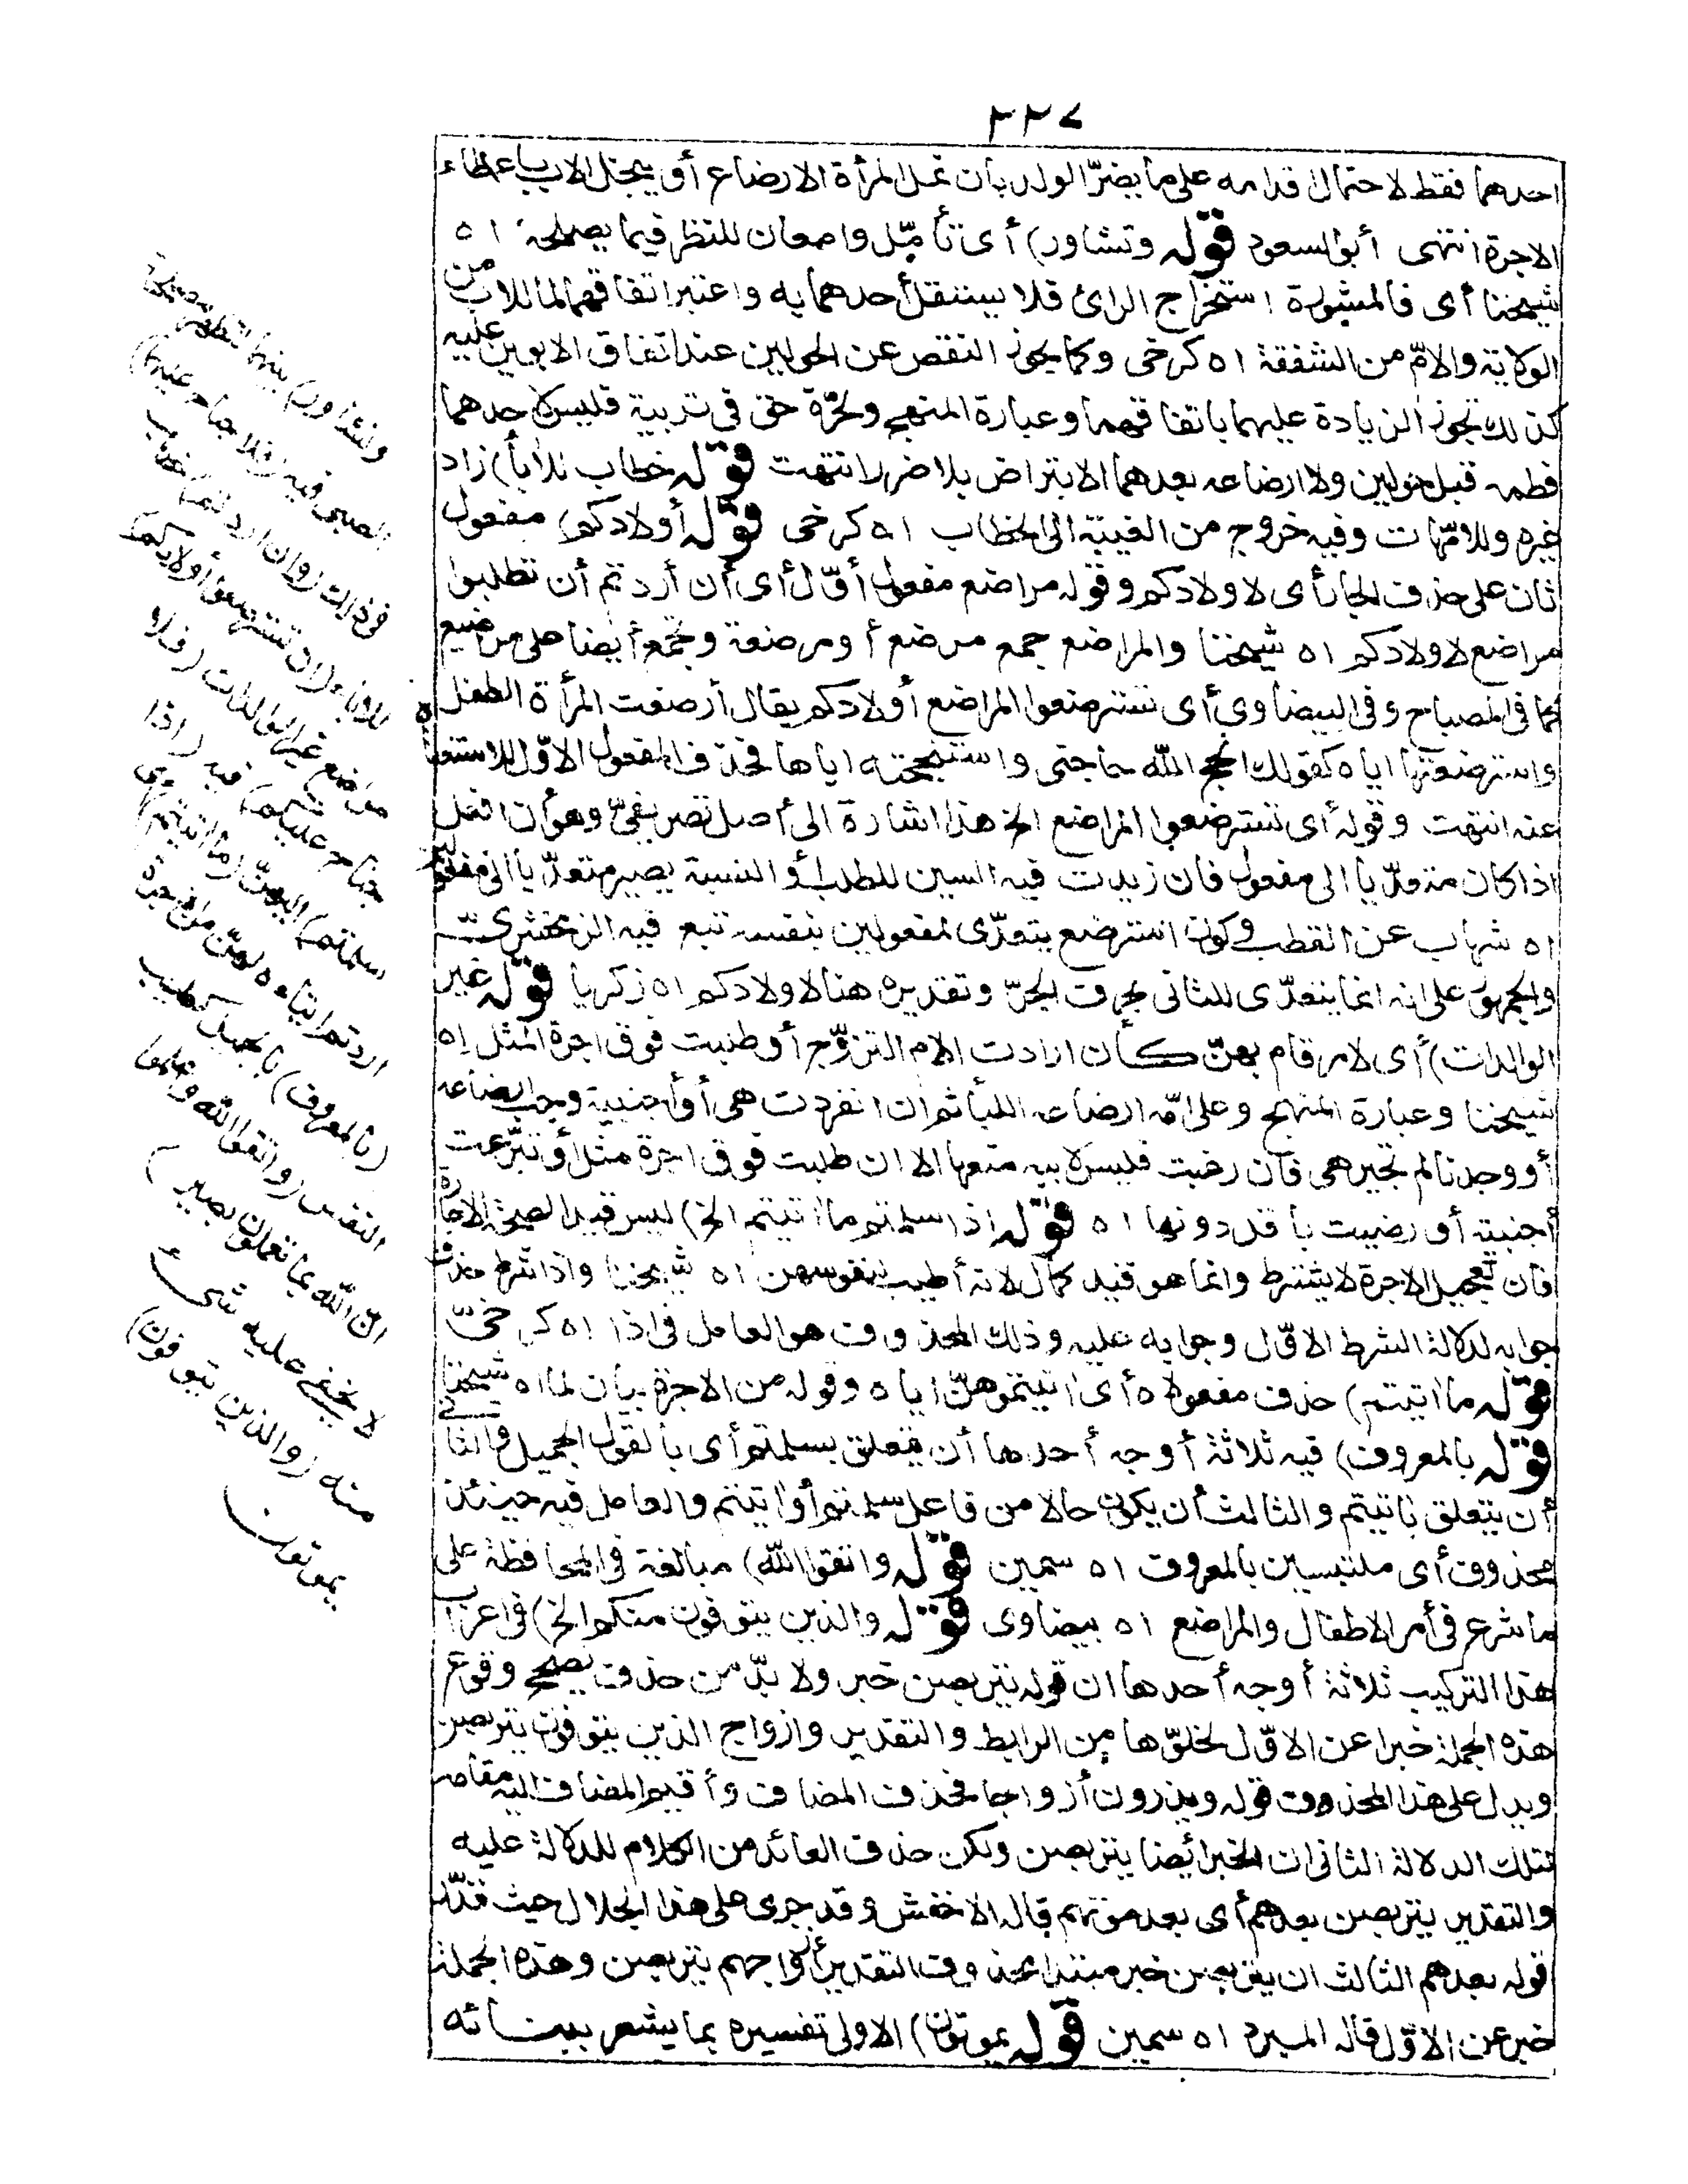 ٢٢٧
احدهما فقط لاحتمال اقدامه على ما يضرّ الولد بأن تمل المرأة الارضاع أو يبخل الاب باعطاء
الاجرة انتهى أبو السعود قوله وتشاور) أى تأمّل وامعان للنظر فيما يصلحه ا ه
شيخنا أى فالمشورة استخراج الرائ فلا يستقل أحدهما به واعتبر اتفاقهما لما للاب من
الولاية والامّ من الشفقة ا ه كرخى وكما يجوز النقص عن الحولين عند اتفاق الابوين عليه
كذلك تجوز الزيادة عليهما باتفاقهما وعبارة المنهج ولحرّة حق فى تربية فليس لاحدهما
فطمه قبل حولين ولا ارضاعه بعدهما الا بتراض بلا ضرر انتهت قوله خطاب للآباء) زاد
غيره وللامّهات وفيه خروج من الغيبة الى الخطاب ا ه كرخى قوله أولادكم) مفعول
ثان على حذف الجار أى لاولادكم وقوله مراضع مفعول أوّل أى أن أردتم أن تطلبوا
مراضع لاولادكم ا ه شيخنا والمراضع جمع مرضع أو مرضعة وتجمع أيضا على مراضيع
كما فى المصباح وفى البيضاوى أى تسترضعوا المراضع أولادكم يقال أرضعت المرأة الطفل
واسترضعتها اياه كقولك انجح الله حاجتى واستنجحته اياها فحذف المفعول الاوّل للاستغناء
عنه انتهت وقوله أى تسترضعوا المراضع الخ هذا اشارة الى أصل تصريفىّ وهو أن افعل
اذا كان متعدّيا الى مفعول فان زيدت فيه السين للطلب أو النسبة يصير متعدّيا الى مفعولين
ا ه شهاب عن القطب وكون استرضع يتعدّى لمفعولين بنفسه تبع فيه الزمخشرىّ
والجمهور على انه انما يتعدّى للثانى بحرف الجرّ وتقديره هنا لاولادكم ا ه زكريا قوله غير
الوالدات) أى لامر قام بهنّ كأن ارادت الام التزوّج أو طلبت فوق اجرة المثل ا ه
شيخنا وعبارة المنهج وعلى امّه ارضاعه اللبأ ثم ان انفردت هى أو أجنبية وجب ارضاعه
أو وجدتا لم تجبر هى فان رغبت فليس لابيه منعها الا ان طلبت فوق اجرة مثل أو تبرّعت
أجنبية أو رضيت بأقل دونها ا ه قوله اذا سلمتم ما آتيتم الخ) ليس قيدا لصحة الاجارة
فان تعجيل الاجرة لا يشترط وانما هو قيد كمال لانه أطيب لنفوسهن ا ه شيخنا واذا شرط حذف
جوابه لدلالة الشرط الاوّل وجوابه عليه وذلك المحذوف هو العامل فى اذا ا ه كرخىّ
قوله ما آتيتم) حذف مفعولاه أى آتيتموهنّ اياه وقوله من الاجرة بيان لما ا ه شيخنا
قوله بالمعروف) فيه ثلاثة أوجه أحدها أن يتعلق بسلمتم أى بالقول الجميل والثانى
أن يتعلق بآتيتم والثالث أن يكون حالا من فاعل سلمتم أو آتيتم والعامل فيه حينئذ
محذوف أى ملتبسين بالمعروف ا ه سمين قوله واتقوا الله) مبالغة فى المحافظة على
ما شرع فى أمر الاطفال والمراضع ا ه بيضاوى قوله والذين يتوفون منكم الخ) فى اعراب
هذا التركيب ثلاثة أوجه أحدها ان قوله يتربصن خبر ولا بدّ من حذف يصحح وقوع
هذه الجملة خبرا عن الاوّل لخلوّها من الرابط والتقدير وازواج الذين يتوفون يتربصن
ويدل على هذا المحذوف قوله ويذرون أزواجا فحذف المضاف وأقيم المضاف اليه مقامه
لتلك الدلالة الثانى ان الخبر أيضا يتربصن ولكن حذف العائد من الكلام للدلالة عليه
والتقدير يتربصن بعدهم أى بعد موتهم قاله الاخفش وقد جرى على هذا الجلال حيث قدّر
قوله بعدهم الثالث ان يتربصن خبر مبتدا محذوف التقدير أزواجهم يتربصن وهذه الجملة
خبر عن الاوّل قاله المبرد ا ه سمين قوله يموتون) الاولى تفسيره بما يشعر ببنائه
وتشاور) بينهما لتظهر مصلحة
الصبى فيه (فلا جناح عليهما)
فى ذلك (وان اردتم) خطاب
للآباء (ان تسترضعوا أولادكم)
مراضع غير الوالدات (فلا
جناح عليكم) فيه (اذا
سلمتم) اليهنّ (ما آتيتم) أى
اردتم ايتاءه لهنّ من الاجرة
(بالمعروف) بالجميل كطيب
النفس (واتقوا الله واعلموا
انّ الله بما تعملون بصير)
لا يخفى عليه شىء
منه (والذين يتوفون)
يموتون